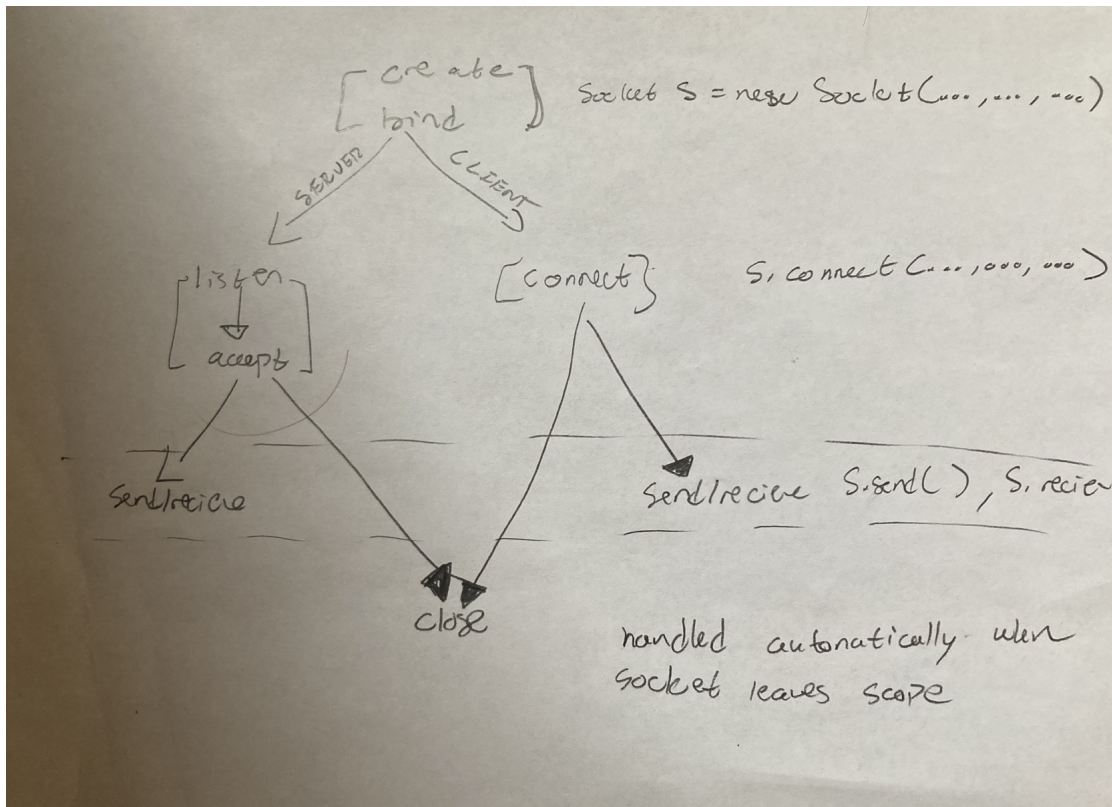 create
bind
Socket S = new Socket(...., ..., ...)
SERVER
CLIENT
listen
accept
[connect}
S. connect (...., ..., ...)
Send/recieve
Send/recieve
S.send() , S. reciev
close
handled automatically when
socket leaves scope